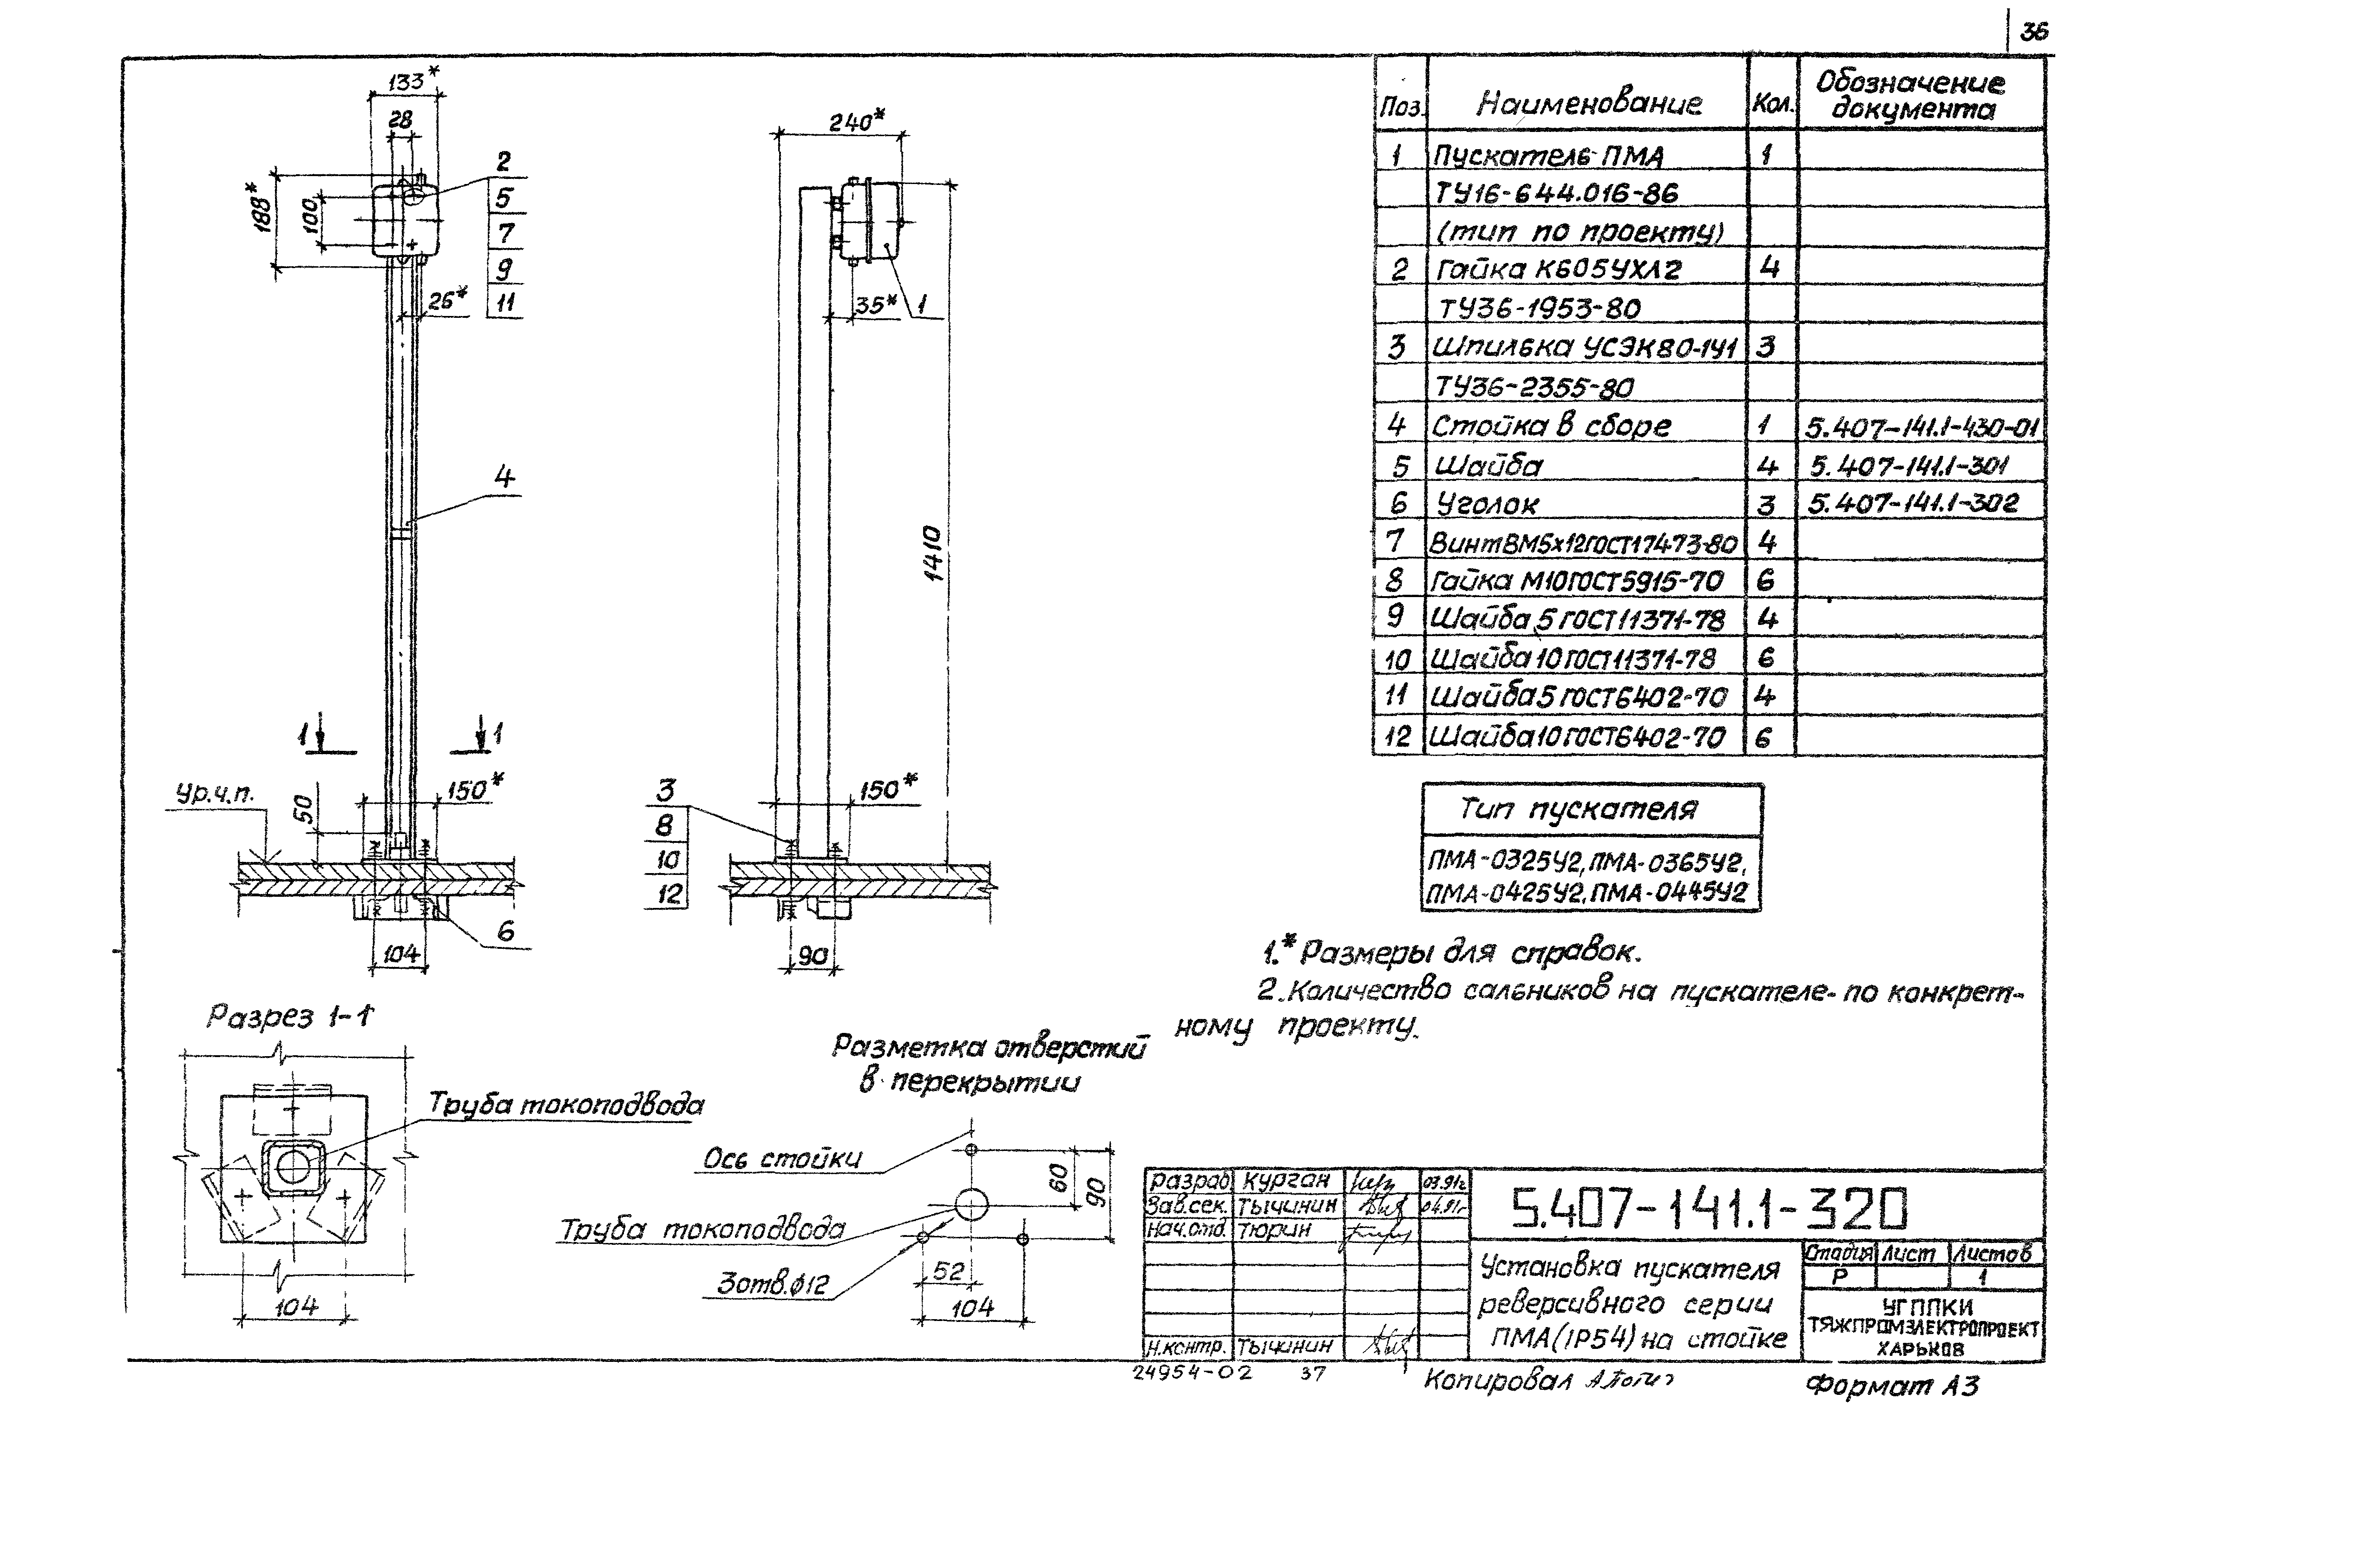 36
133*
28
188*
100
2
5
7
9
11
26*
4
1 1
Ур.ч.п.
50
150*
6
104
240*
35*
1
1410
3
8
10
12
150*
90
Поз. Наименование Кол. Обозначение документа
1 Пускатель ПМА 1
ТУ16-644.016-86
(тип по проекту)
2 Гайка К605УХЛ2 4
ТУ36-1953-80
3 Шпилька УСЭК80-1У1 3
ТУ36-2355-80
4 Стойка в сборе 1 5.407-141.1-430-01
5 Шайба 4 5.407-141.1-301
6 Уголок 3 5.407-141.1-302
7 Винт ВМ5х12 ГОСТ17473-80 4
8 Гайка М10 ГОСТ5915-70 6
9 Шайба 5 ГОСТ11371-78 4
10 Шайба 10 ГОСТ11371-78 6
11 Шайба 5 ГОСТ6402-70 4
12 Шайба 10 ГОСТ6402-70 6
Тип пускателя
ПМА-0325У2, ПМА-0365У2,
ПМА-0425У2, ПМА-0445У2
1.* Размеры для справок.
2. Количество сальников на пускателе - по конкрет-
ному проекту.
Разрез 1-1
Труба токоподвода
104
Разметка отверстий
в перекрытии
Ось стойки
Труба токоподвода
3отв.ф12
52
104
60
90
Разраб. Курган 03.91г
Зав.сек. Тычинин 04.91г
Нач.отд. Тюрин
Н.контр. Тычинин
5.407-141.1-320
Установка пускателя
реверсивного серии
ПМА(IP54) на стойке
Стадия Лист Листов
Р 1
УГППКИ
ТЯЖПРОМЭЛЕКТРОПРОЕКТ
ХАРЬКОВ
24954-02 37
Копировал
Формат А3